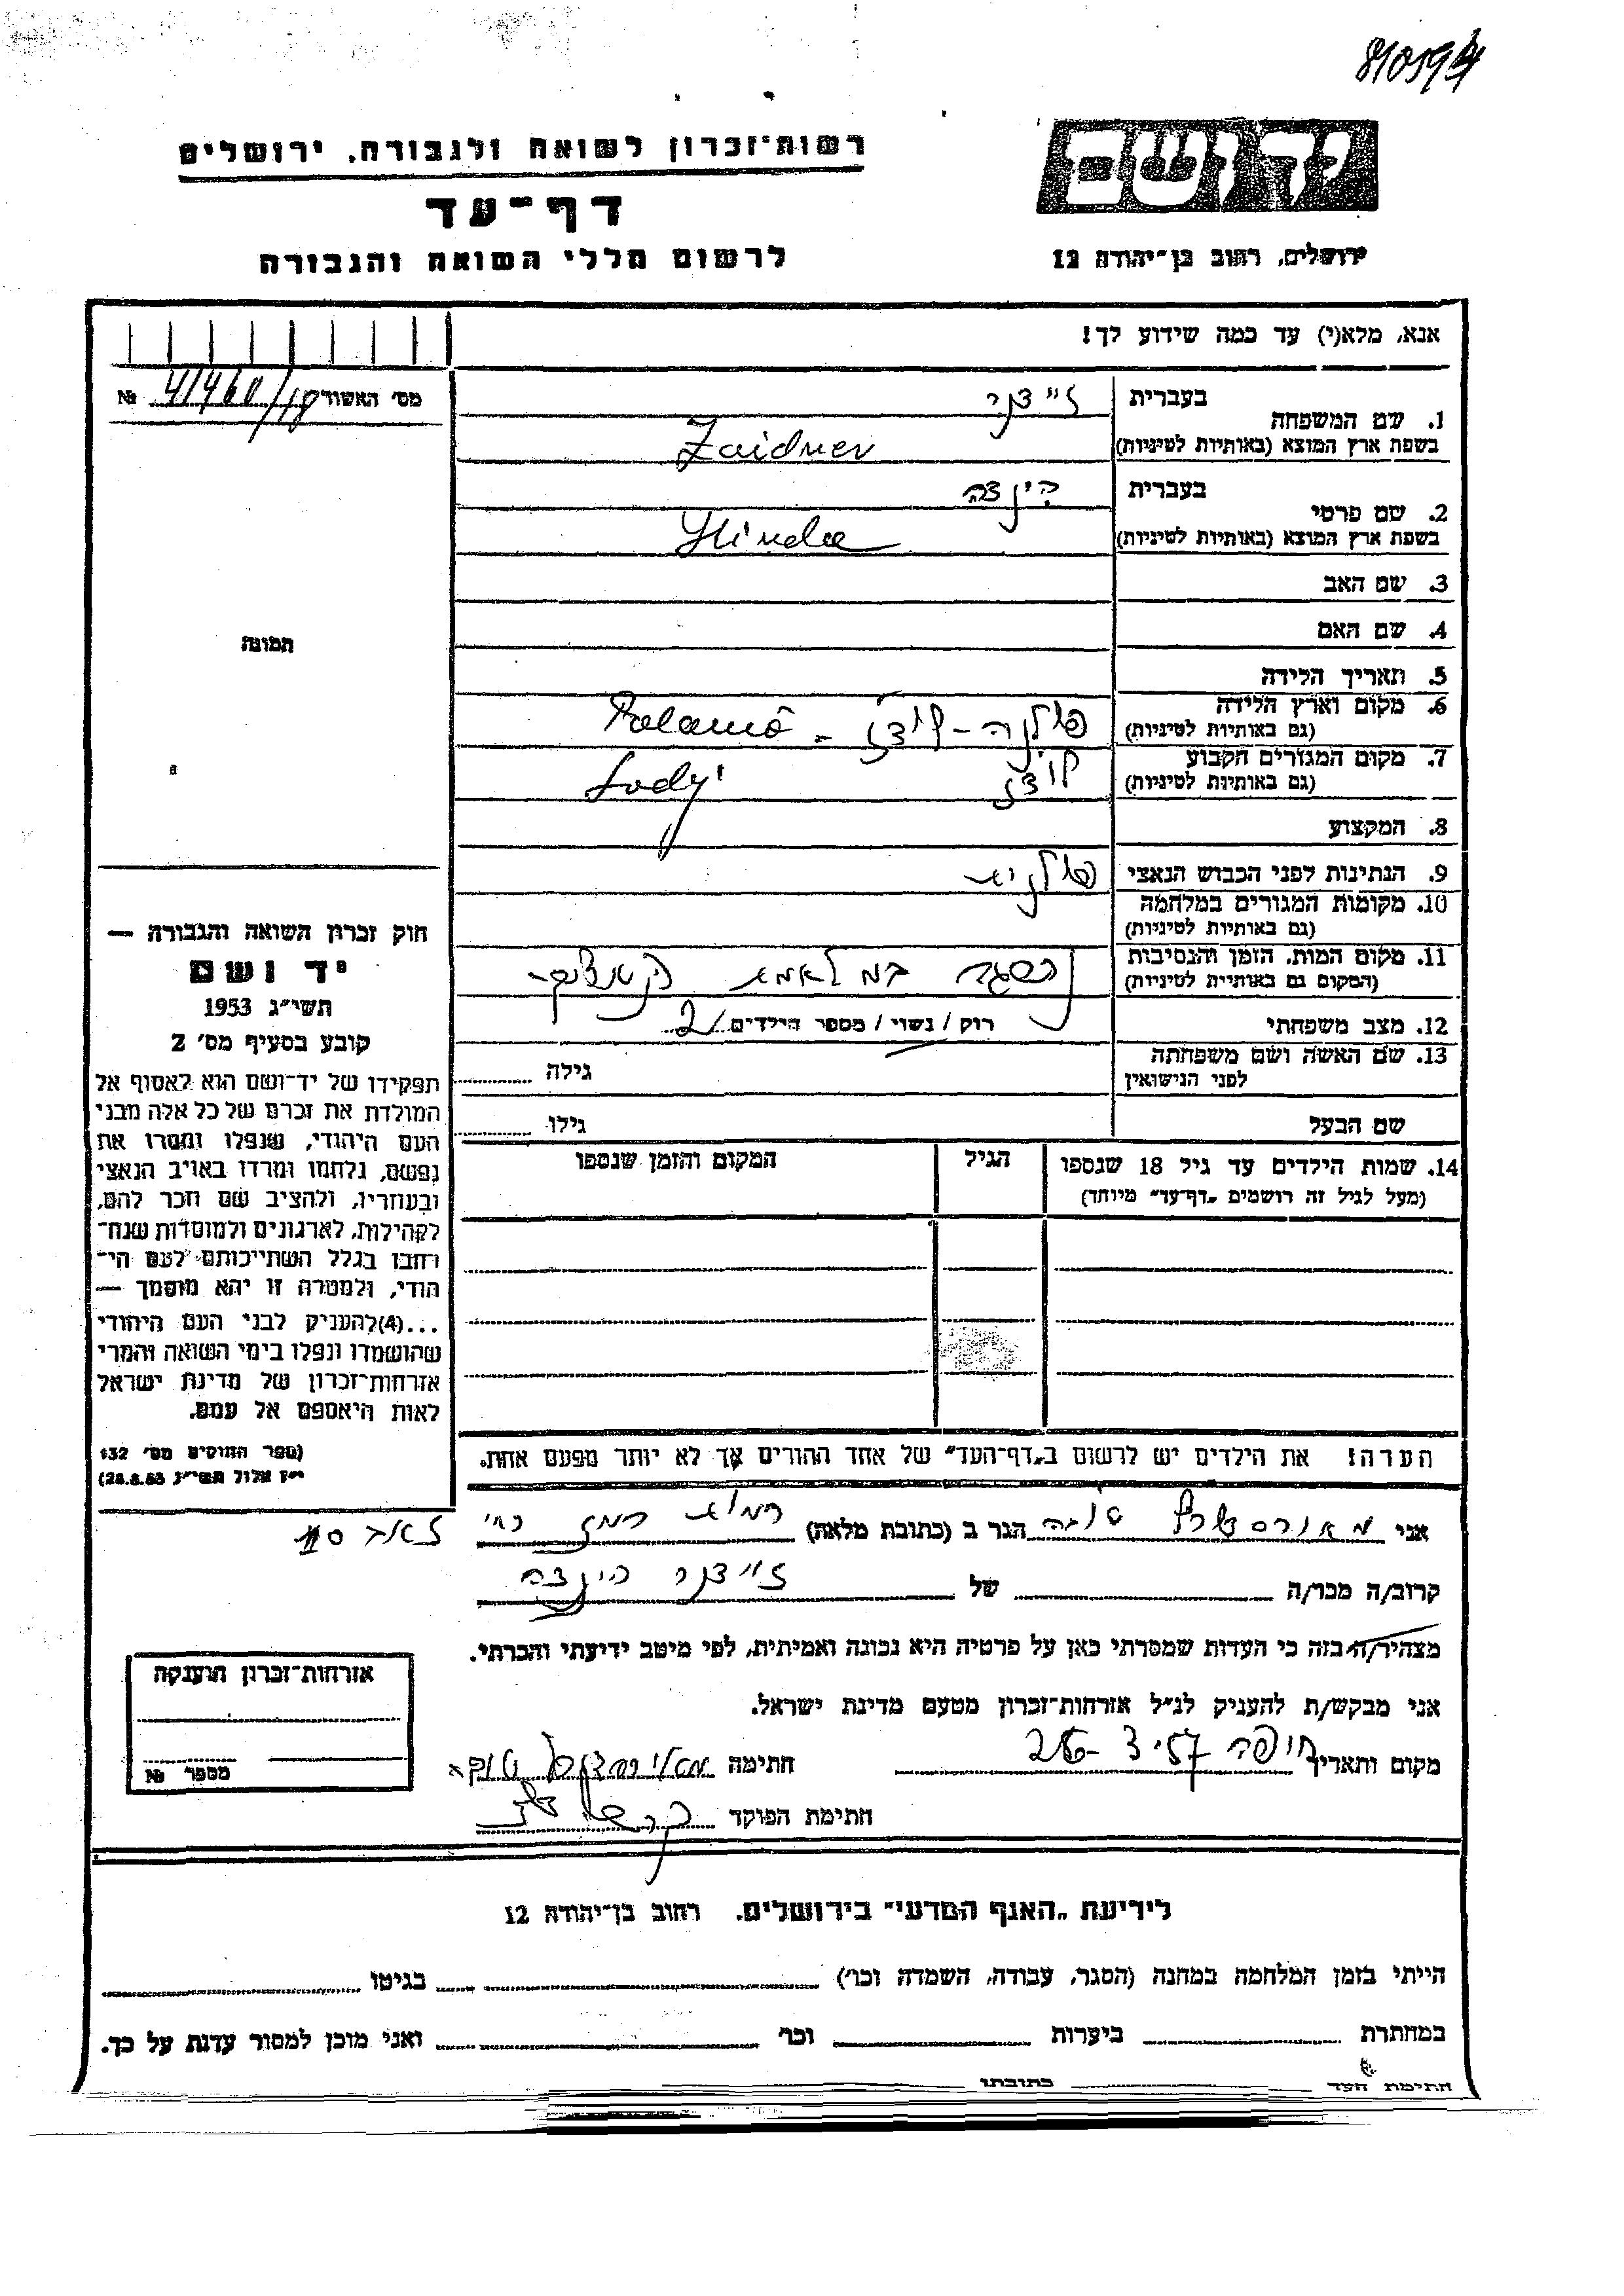 810594
רשות־זכרון לשואה ולגבורה, ירושלים
דף־עד
לרשום חללי השואה והגבורה
יד ושם
ירושלים, רחוב בן־יהודה 12
אנא, מלא(י) עד כמה שידוע לך!
מס׳ האשור № 41460/18
תמונה
1. שם המשפחה
בעברית זיידנר
בשפת ארץ המוצא (באותיות לטיניות) Zaidner
2. שם פרטי
בעברית הינדה
בשפת ארץ המוצא (באותיות לטיניות) Hinda
3. שם האב
4. שם האם
5. תאריך הלידה
6. מקום וארץ הלידה
(גם באותיות לטיניות) פולניה - לודז -
7. מקום המגורים הקבוע
(גם באותיות לטיניות) לודז
8. המקצוע
9. הנתינות לפני הכבוש הנאצי פולניא
10. מקומות המגורים במלחמה
(גם באותיות לטיניות)
11. מקום המות, הזמן והנסיבות
(המקום גם באותיות לטיניות)
12. מצב משפחתי רוק / נשוי / מספר הילדים 2
13. שם האשה ושם משפחתה
לפני הנישואין
גילה
שם הבעל
גילו
14. שמות הילדים עד גיל 18 שנספו
(מעל לגיל זה רושמים „דף־עד״ מיוחד)
הגיל
המקום והזמן שנספו
חוק זכרון השואה והגבורה —
יד ושם
תשי״ג 1953
קובע בסעיף מס׳ 2
תפקידו של יד־ושם הוא לאסוף אל
המולדת את זכרם של כל אלה מבני
העם היהודי, שנפלו ומסרו את
נפשם, נלחמו ומרדו באויב הנאצי
ובעוזריו, ולהציב שם וזכר להם,
לקהילות, לארגונים ולמוסדות שנח־
רבו בגלל השתייכותם לעם הי־
הודי, ולמטרה זו יהא מוסמך —
...(4)להעניק לבני העם היהודי
שהושמדו ונפלו בימי השואה והמרי
אזרחות־זכרון של מדינת ישראל
לאות היאספם אל עמם.
(ספר החוקים מס׳ 132
י״ז אלול תשי״ג 28.8.53)
הערה! את הילדים יש לרשום ב„דף־העד״ של אחד ההורים אך לא יותר מפעם אחת.
אני טובה הגר ב (כתובת מלאה)
קרוב/ה מכר/ה של זיידנר הינדה
מצהיר/ה בזה כי העדות שמסרתי כאן על פרטיה היא נכונה ואמיתית, לפי מיטב ידיעתי והכרתי.
אני מבקש/ת להעניק לנ״ל אזרחות־זכרון מטעם מדינת ישראל.
מקום ותאריך חיפה חתימה
חתימת הפוקד
אזרחות־זכרון הוענקה
מספר №
לידיעת „האגף המדעי״ בירושלים. רחוב בן־יהודה 12
הייתי בזמן המלחמה במחנה (הסגר, עבודה, השמדה וכו׳) בגיטו
במחתרת ביערות וכו׳ ואני מוכן למסור עדות על כך.
חתימת העד כתובתו